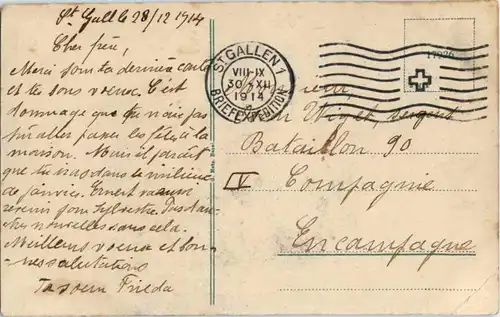 St. Gall le 28/12 1914
Cher frère,
Merci pour ta dernière carte
et tes bons voeux. C'est
dommage que tu n'aies pas
pu aller passer les fêtes à la
maison. Mais il paraît
que tu iras dans le milieu
de janvier. Ernest va aussi
revenir pour Sylvestre. Pas d'au-
tres nouvelles dans cela.
Meilleurs voeux et bon-
nes salutations
Ta soeur Frieda
ST. GALLEN 1
VIII-IX
30 XII
1914
BRIEFEXPEDITION
sergent
Bataillon 90
V Compagnie
En campagne